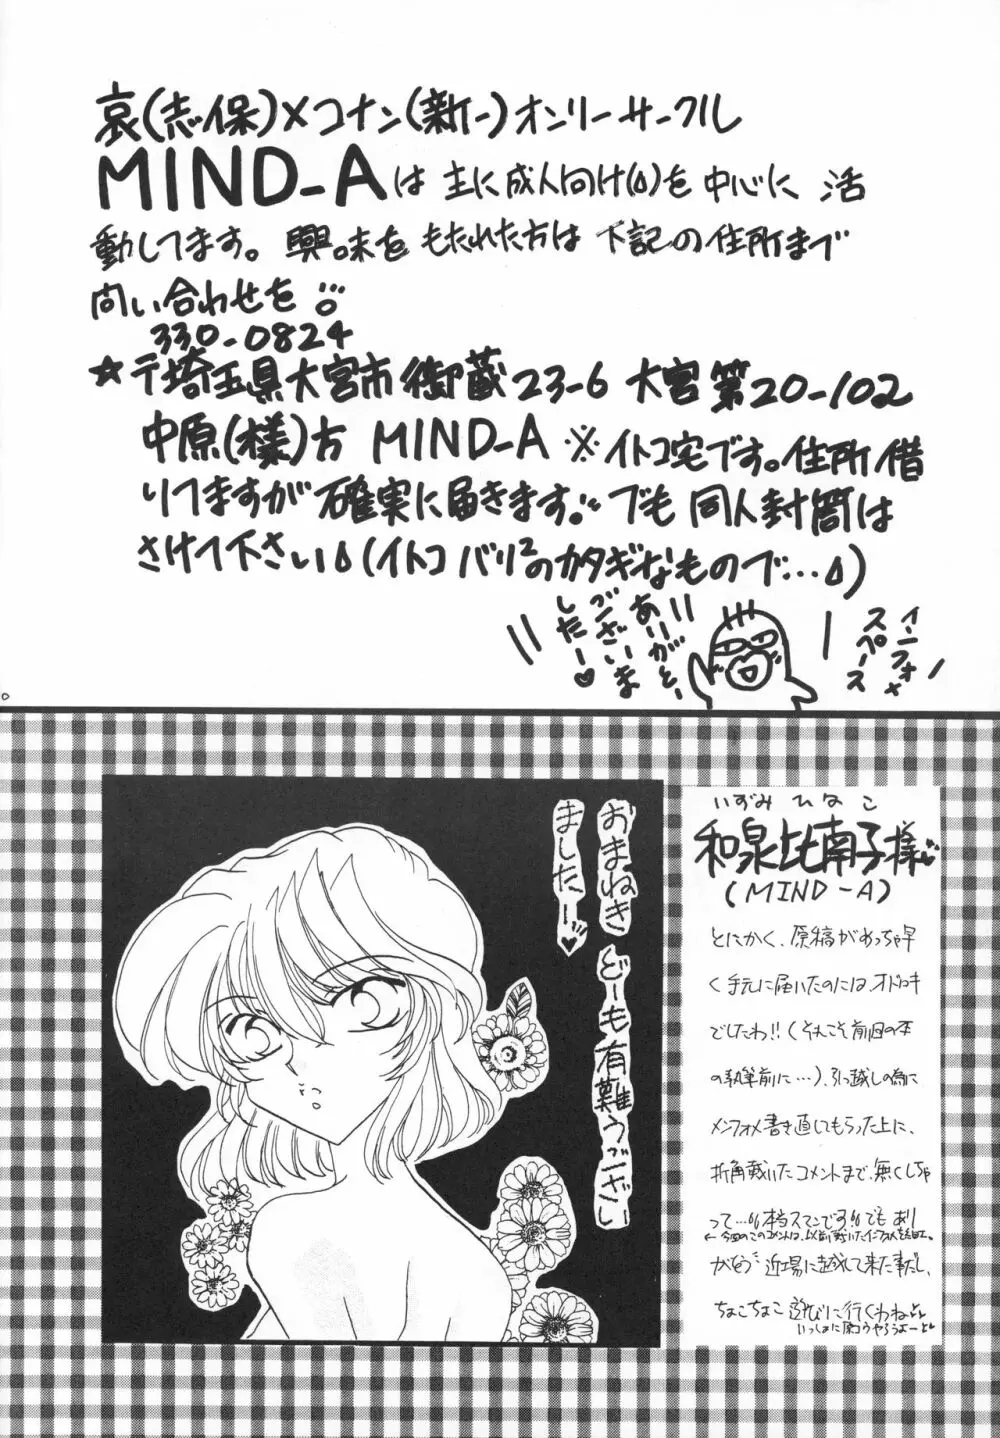 哀(志保)×コナン(新一)オンリーサークル
MIND-Aは 主に成人向け(Δ)を 中心に 活
動してます。興味を もたれた方は 下記の住所まで
問い合わせを
330-0824
☆〒埼玉県大宮市御蔵23-6 大宮第20-102
中原(様)方 MIND-A ※イトコ宅です。住所借
りてますが確実に届きます。でも 同人封筒は
さけて下さい(イトコ バリ²のカタギなもので…)
インフォメ
スペース
ありがとー
ございま
したー♡
いずみ ひなこ
和泉比南子様
(MIND-A)
とにかく、原稿がめっちゃ早
く手元に届いたのにはオドロキ
でしたわ!!(それこそ前回の本
の執筆前に…)、引っ越しの為に
インフォメ書き直してもらった上に、
折角戴いたコメントまで、無くしちゃ
って…本当スマンですでも あり
←今回のこのコメントは、以前戴いた
がとう 近場に越して来た事だし、
ちょこちょこ 遊びに行くわね
いっしょに
おまねき
ました—♥
どーも有難うござい